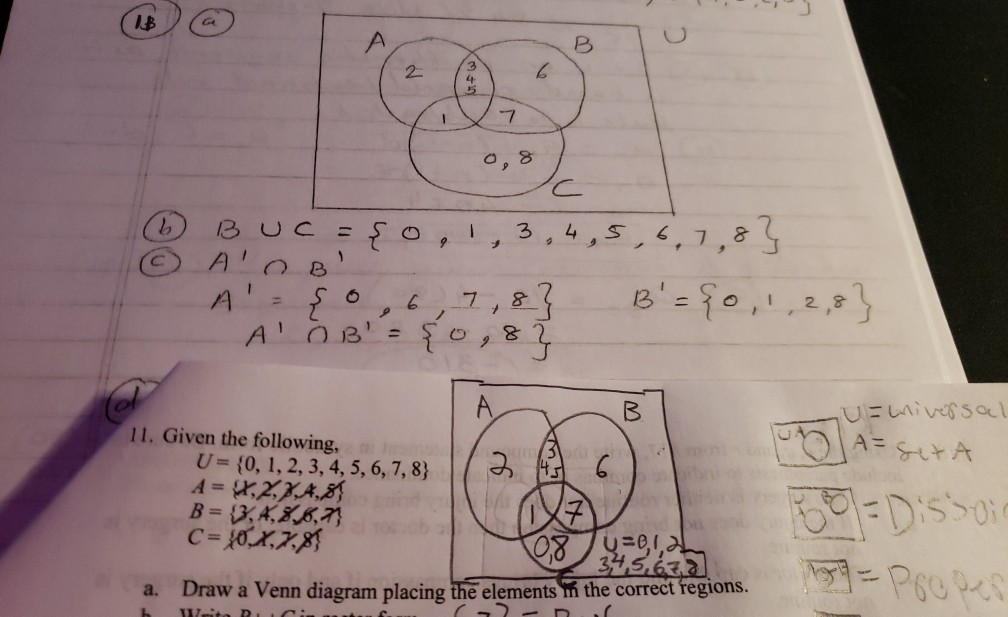 1B a
A B U
2 3 6
4
5
1 7
0, 8
C
b B ∪ C = { 0, 1, 3, 4, 5, 6, 7, 8 }
c A' ∩ B'
A' = { 0, 6, 7, 8 } B' = { 0, 1, 2, 8 }
A' ∩ B' = { 0, 8 }
d
A B
11. Given the following,
U = {0, 1, 2, 3, 4, 5, 6, 7, 8}
A = {1, 2, 3, 4, 5}
B = {3, 4, 5, 6, 7}
C = {0, 1, 7, 8}
2 3 6
4 5
1 7
0,8 U = 0, 1, 2
3, 4, 5, 6, 7, 8
C
U = universal
A = Set A
= Disjoi
a. Draw a Venn diagram placing the elements in the correct regions.